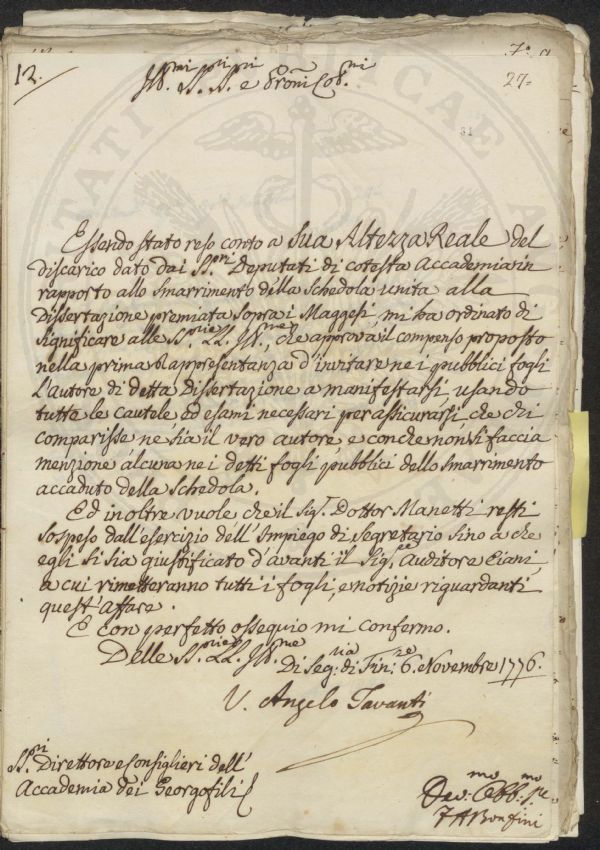 12.
27=
31
Ill.mi SS.ri SS.ri e Proñi Col.mi
Essendo stato reso conto a Sua Altezza Reale del
discarico dato dai SS.ri Deputati di cotesta Accademia in
rapporto allo smarrimento della Schedola unita alla
Dissertazione premiata sopra i Maggesi, mi ha ordinato di
significare alle SS.rie LL. Ill.me, che approva il compenso proposto
nella prima Rappresentanza d'invitare nei pubblici fogli
l'autore di detta Dissertazione a manifestarsi, usando
tutte le cautele, ed esami necessari per assicurarsi, che chi
comparisse ne sia il vero autore, e con che non si faccia
menzione alcuna nei detti fogli pubblici dello smarrimento
accaduto della Schedola.
Ed inoltre vuole che il Sig.r Dottor Manetti resti
sospeso dall'esercizio dell'Impiego di Segretario sino a che
egli si sia giustificato d'avanti il Sig.re Auditore Ciani,
a cui rimetteranno tutti i fogli, e notizie riguardanti
quest'Affare.
E con perfetto ossequio mi confermo.
Delle SS.rie LL. Ill.me
Di Seg.ria di Fin.ze 6. Novembre 1776.
V. Angelo Tavanti
SS.ri Direttore e Consiglieri dell'
Accademia dei Georgofili
Dev.mo Obb.mo S.re
F A Bonfini